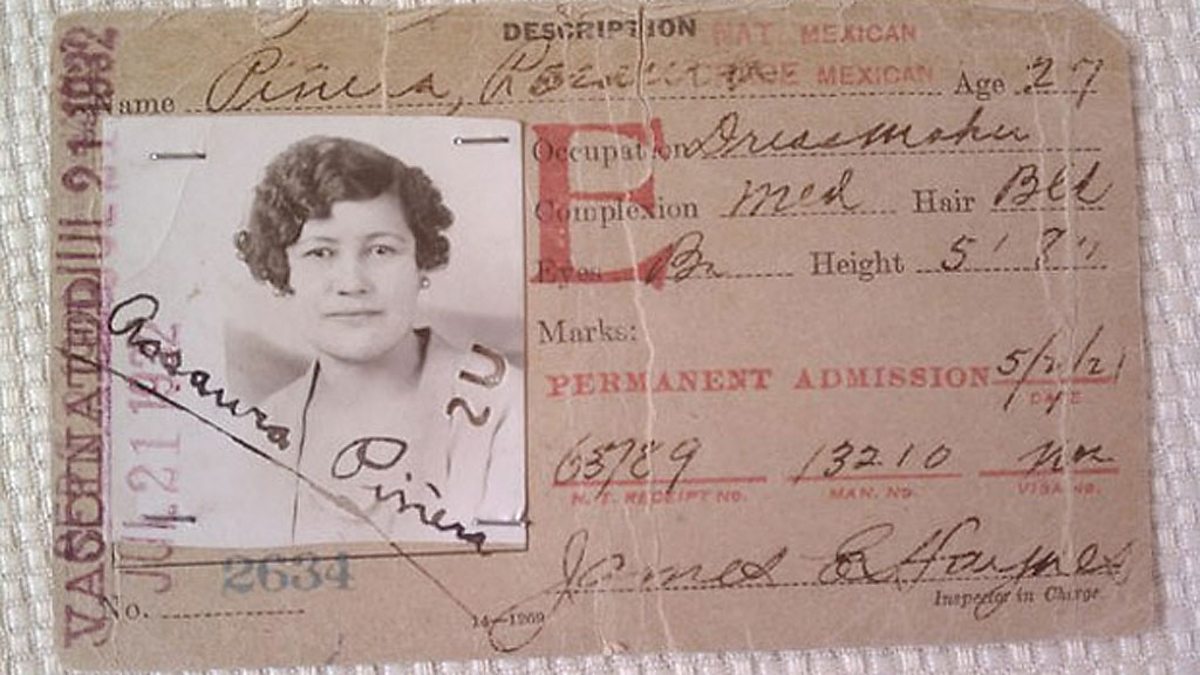 DESCRIPTION NAT. MEXICAN
Name Piñera, MEXICAN Age 27
Occupation Dressmaker
E
Complexion Med Hair Blk
Eyes Br Height 5'
Marks:
PERMANENT ADMISSION 5/2/21
DATE
65789 13210 non
N. T. RECEIPT No. MAN. No. VISA No.
James E Haynes
Inspector in Charge.
VACCINATED
JUL 21 1932
Rosaura Piñera
2634
No.
14—1269